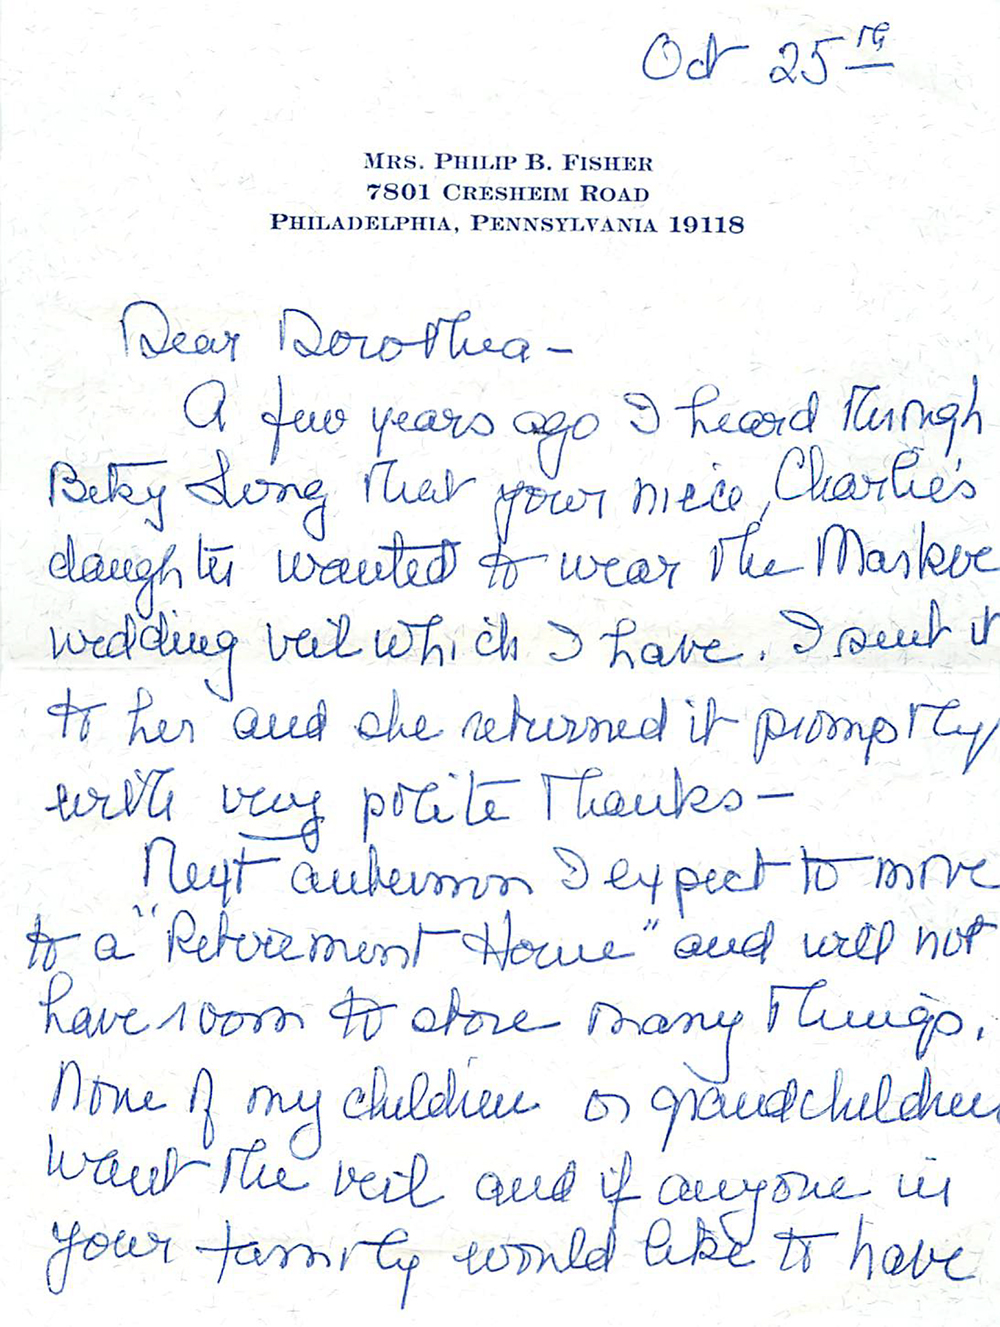 Oct 25th
MRS. PHILIP B. FISHER
7801 CRESHEIM ROAD
PHILADELPHIA, PENNSYLVANIA 19118
Dear Dorothea –
A few years ago I heard through
Betsy Long that your niece, Charlie's
daughter wanted to wear the Maskoe
wedding veil which I have. I sent it
to her and she returned it promptly
with very polite thanks –
Next autumn I expect to move
to a "Retirement Home" and will not
have room to store many things.
None of my children or grandchildren
want the veil and if anyone in
your family would like to have